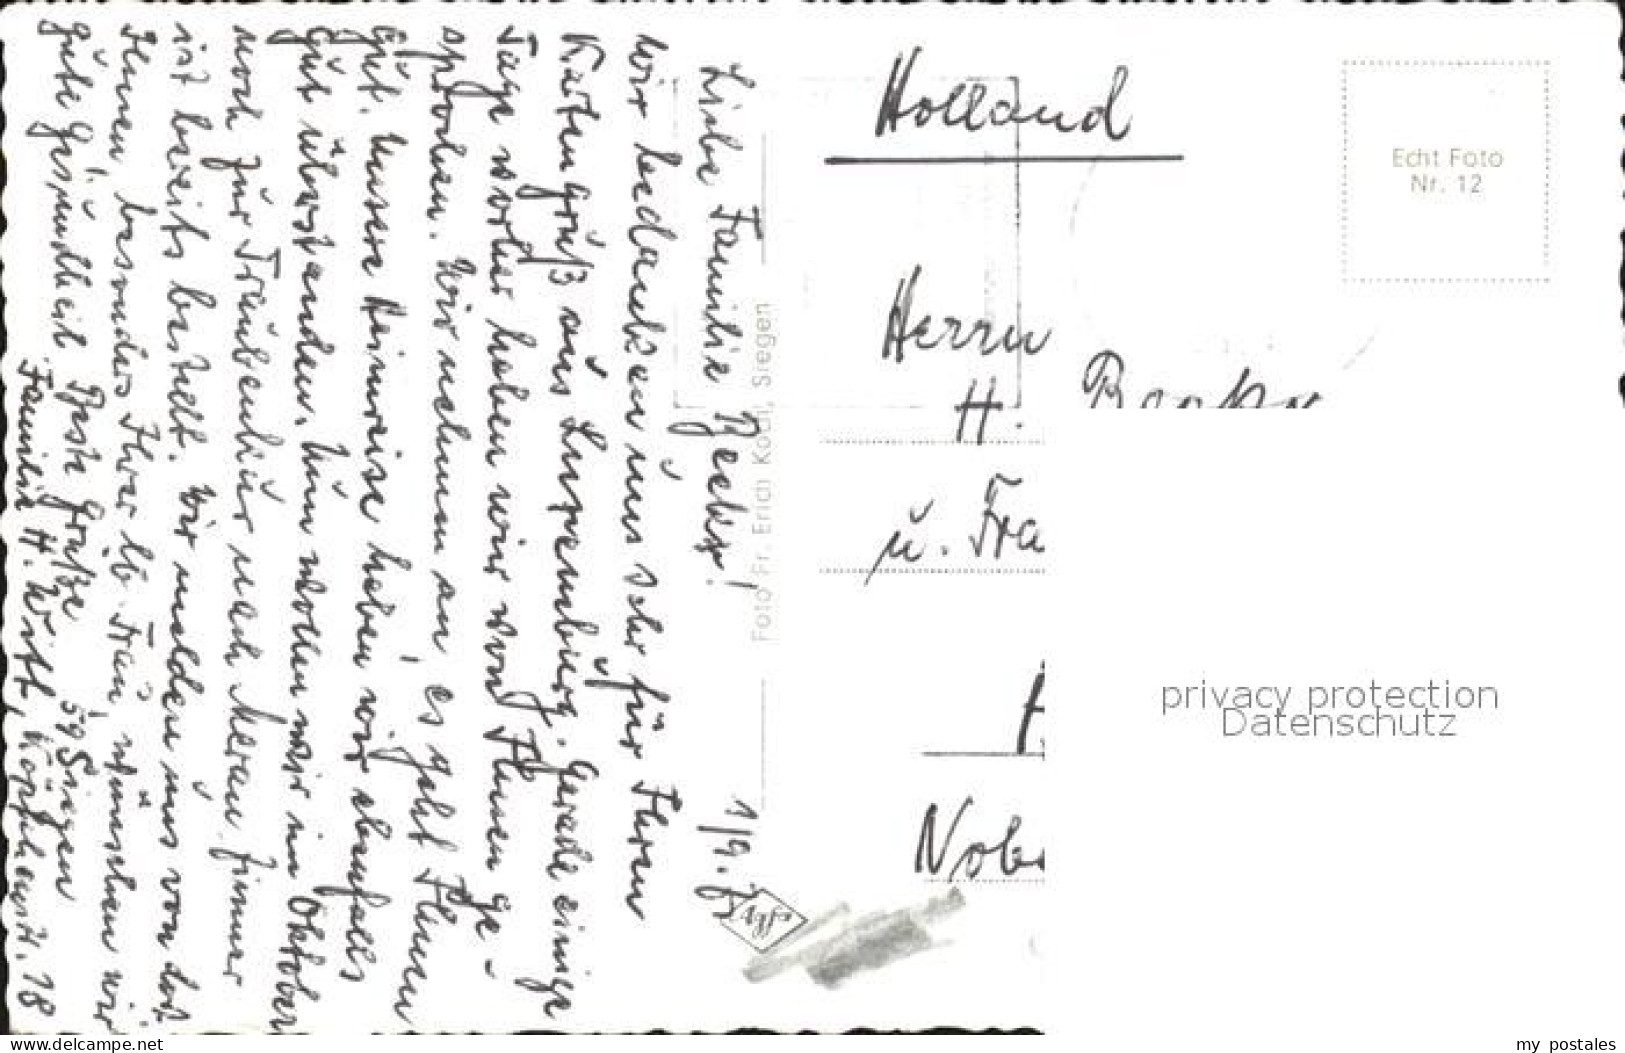 Liebe Familie Becker! 1/9.
wir bedanken uns sehr für Ihren
Kartengruß aus Luxemburg. Gerade einige
Tage vorher haben wir von Ihnen ge-
sprochen. Wir nehmen an es geht Ihnen
gut. Unsere Heimreise haben wir ebenfalls
gut überstanden. Nun wollen wir im Oktober
noch zur Traubenkur nach Meran Zimmer
ist bereits bestellt. Wir melden uns von dort
Ihnen, besonders Ihrer lb. Frau, wünschen wir
gute Gesundheit. Beste Grüße 59 Siegen
Familie H. Witt, 18
Foto Fr. Erich Koch, Siegen
Holland
Echt Foto
Nr. 12
Herrn
H.
u. Fra
privacy protection
Datenschutz
www.delcampe.net
my_postales